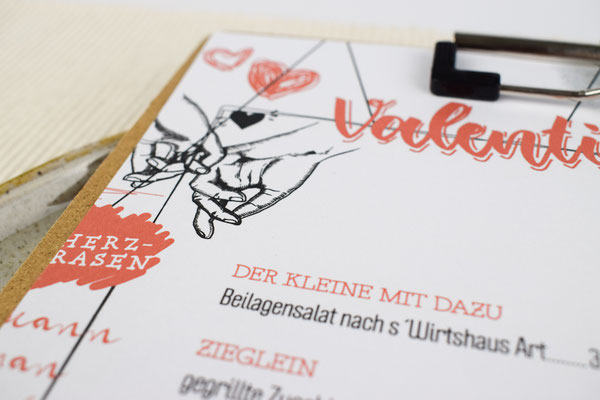 Valenti
HERZ-
RASEN
DER KLEINE MIT DAZU
Beilagensalat nach s´Wirtshaus Art.......3
ZIEGLEIN
gegrillte